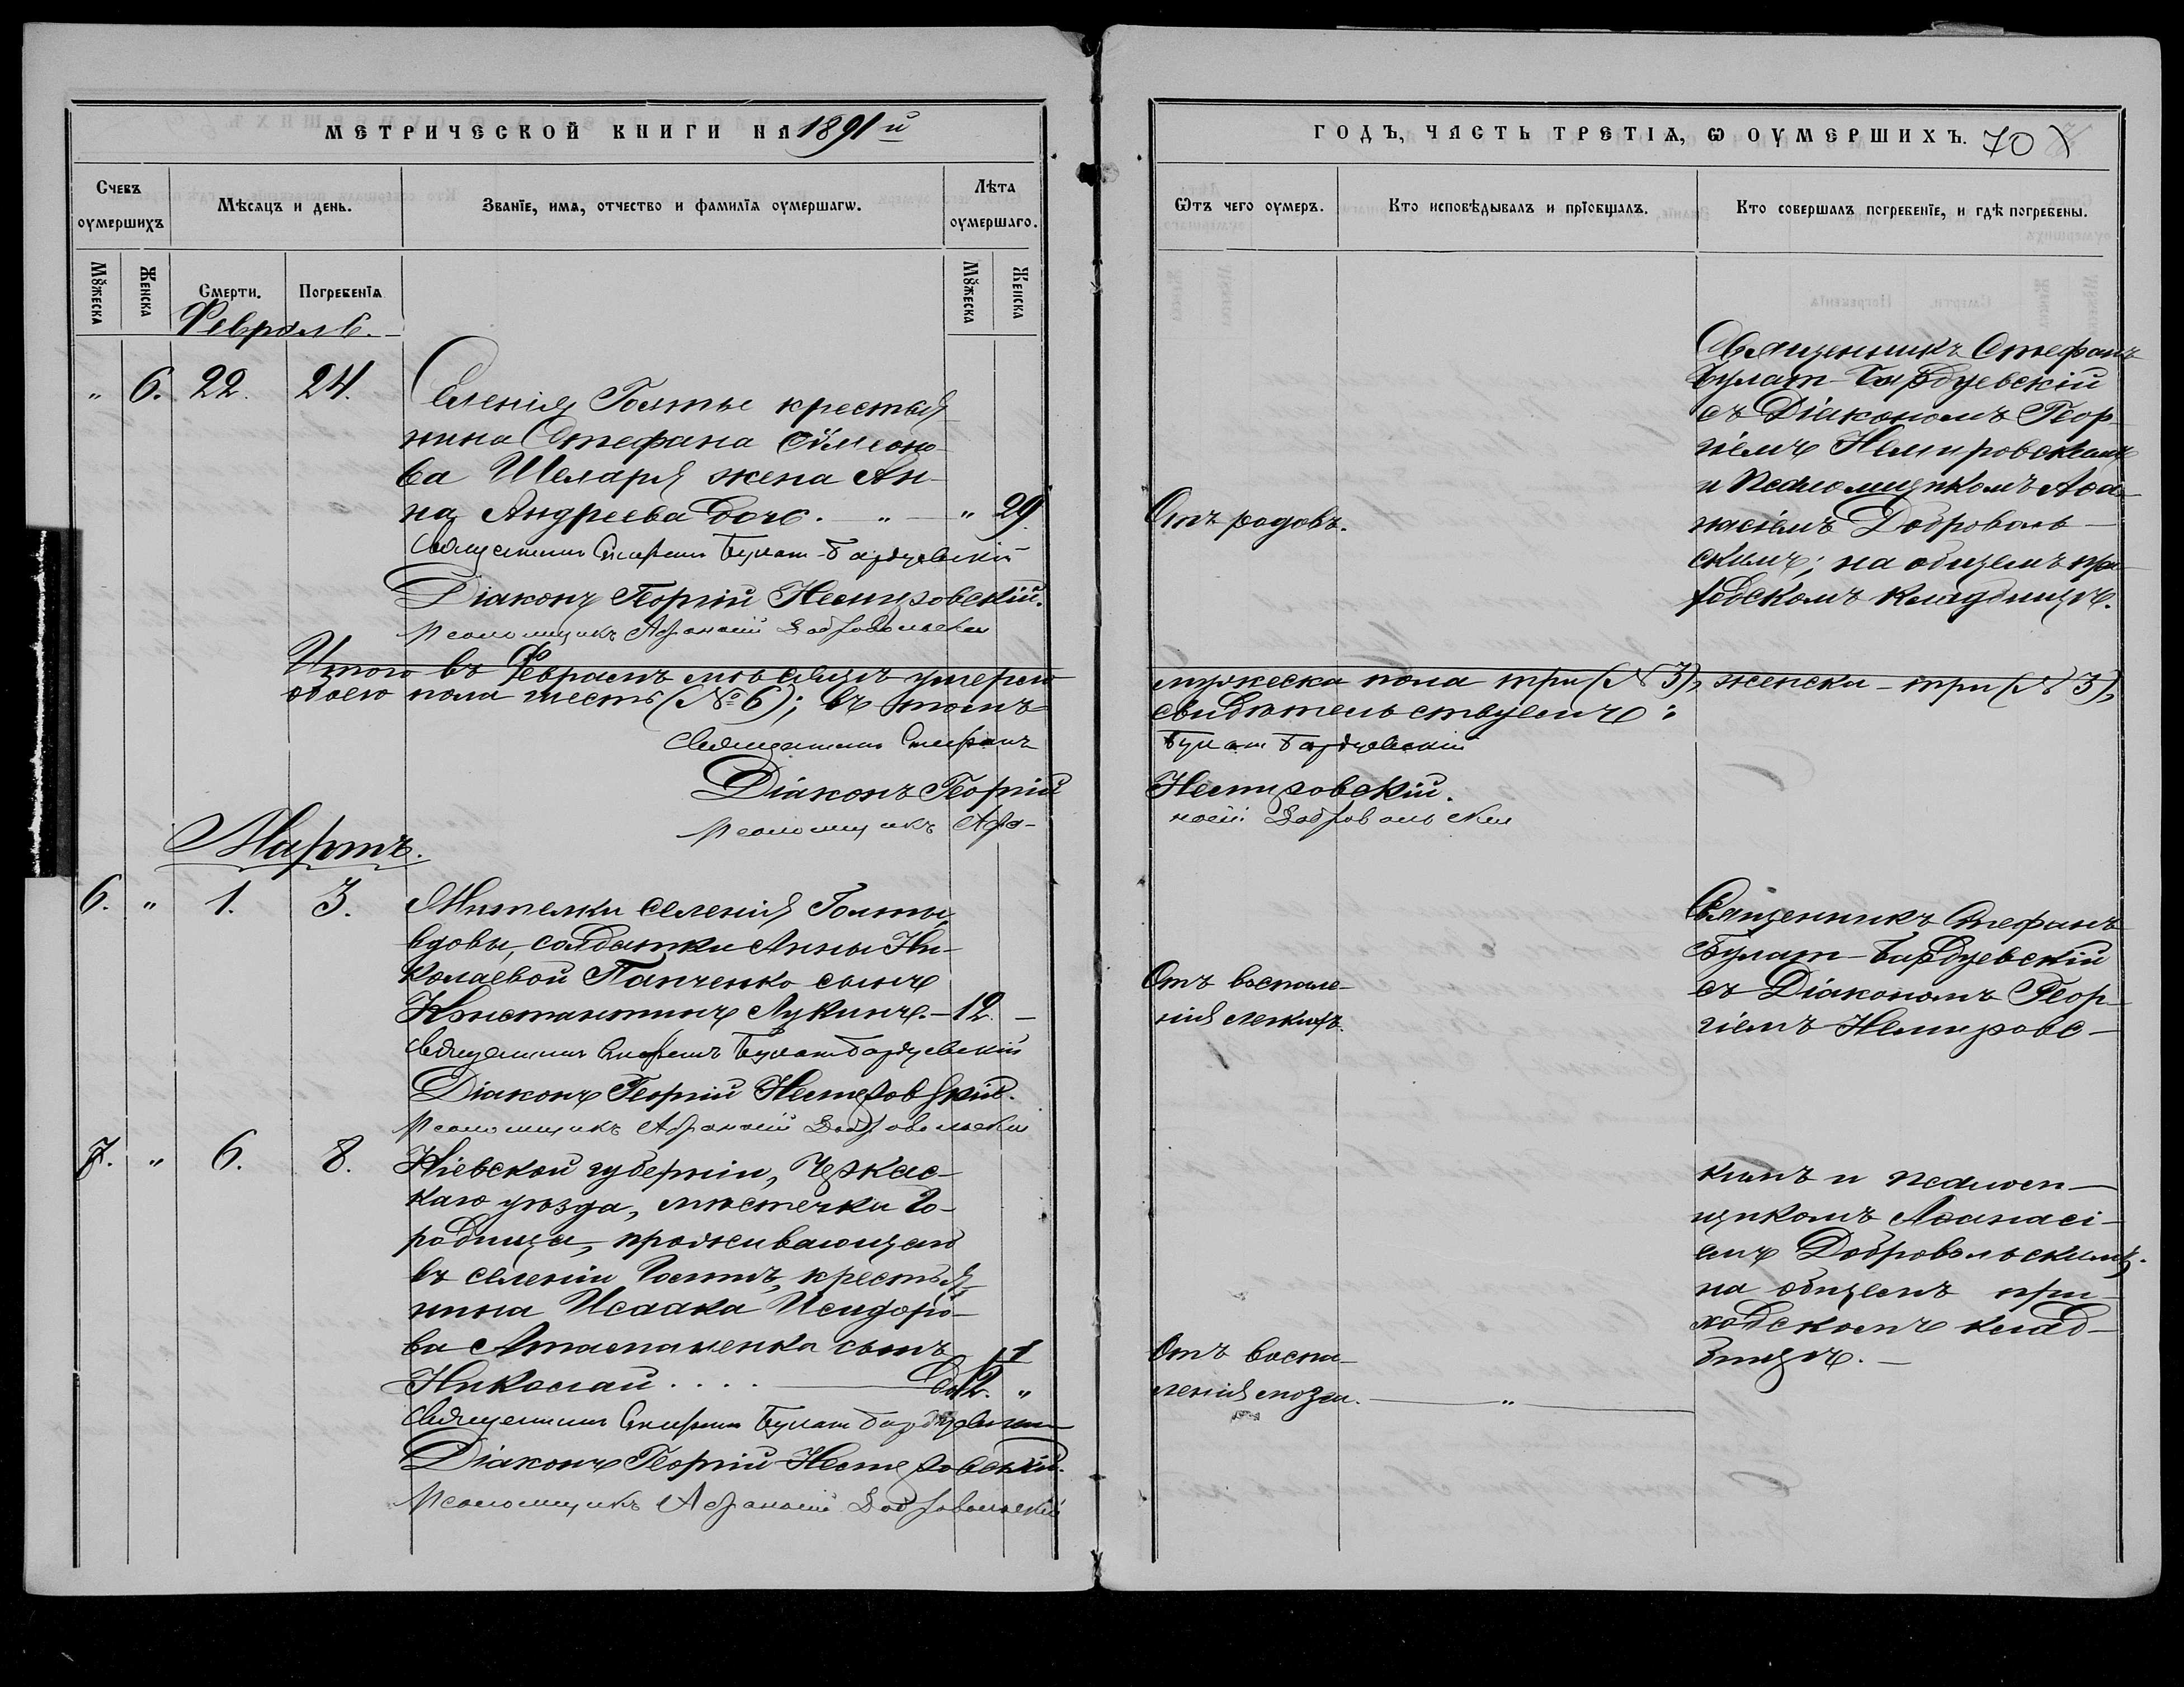 МЕТРИЧЕСКОЙ КНИГИ НА 1891й
Счетъ оумершихъ
Мѣсяцъ и день.
Званїе, имя, отчество и фамилїя оумершагѡ.
Лѣта оумершаго.
Мꙋжеска
Женска
Смерти.
Погребенїя
Мꙋжеска
Женска
Февраль.
„ 6. 22. 24.
Селенія Голты крестья
нина Стефана Сѵмеоно-
ва Шеларя жена Ан-
на Андреева дочь. — „ — „ 29.
Священникъ Стефанъ Булат-Бардуевскій
Діаконъ Георгій Немировскій.
Псаломщикъ Афанасій Добровольскій
Итого въ Февралѣ мѣсяцѣ умерло
обоего пола шесть (№ 6); въ томъ
Священникъ Стефанъ
Діаконъ Георгій
Псаломщикъ Афа-
Мартъ.
6. „ 1. 3.
Жителки селенія Голты,
вдовы, солдатки Анны Ни-
колаевой Панченко сынъ
Константинъ Лукинъ. — 12. —
Священникъ Стефанъ Булат Бардуевскій
Діаконъ Георгій Немировскій.
Псаломщикъ Афанасій Добровольскій
7. „ 6. 8.
Кіевской губерніи, Черкас-
каго уѣзда, мѣстечка Го-
родища, проживающаго
въ селеніи Голтѣ, крестья
нина Исаака Исидоро-
ва сынъ
Николай . . . . — „
Священникъ Стефанъ Булат Бардуевскій
Діаконъ Георгій Немировскій.
Псаломщикъ Афанасій Добровольскій
ГОДЪ, ЧАСТЬ ТРЕТІЯ, Ѡ ОУМЕРШИХЪ. 70
Ѿтъ чего оумеръ.
Кто исповѣдывалъ и прїобщалъ.
Кто совершалъ погребенїе, и гдѣ погребены.
Отъ родовъ.
Священникъ Стефанъ
Булат-Бардуевскій
съ Діакономъ Геор-
гіемъ Немировскимъ
и Псаломщикомъ Аѳа-
насіемъ Доброволь-
скимъ; на общемъ при-
ходскомъ кладбищѣ.
мужеска пола три (№ 3), женска — три (№ 3),
свидѣтельствуемъ:
Булат Бардуевскій
Немировскій.
насій Добровольскій
Отъ воспале-
нія легкихъ.
Священникъ Стефанъ
Булат-Бардуевскій
съ Діакономъ Геор-
гіемъ Немировс-
кимъ и псалом-
щикомъ Аѳанасі-
емъ Добровольскимъ.
на общемъ при-
ходскомъ клад-
бищѣ. —
Отъ воспа-
ленія мозга. — „ —